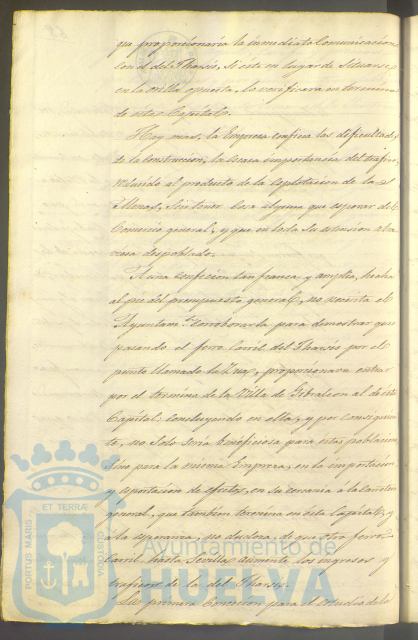 que proporcionaria la inmediata Comunicacion
con el del Tharsis, si este en lugar de situarse
en la orilla opuesta, lo verificara en termino
de esta Capital.
Hay mas, la Empresa confiesa las dificultades
de la Construccion, la escasa importancia del trafico,
reducido al producto de la esplotacion de las
Minas, sin tener cosa alguna que esperar del
Comercio general, y que en toda su estension atra
viesa despoblado.
A una confesion tan franca y amplia, hecha
al pie del presupuesto general, no necesita el
Ayuntam.to corroborarla para demostrar que
pasando el ferro Carril del Tharsis por el
punto llamado la , proporcionava entrar
por el termino de la Villa de Gibraleon al de esta
Capital; concluyendo en ella, y por consiguien
te, no solo seria beneficiosa para estas poblaciones
sino para la misma Empresa, en la importacion
y esportacion de efectos, en su cercania á la Carretera
general, que tambien termina en esta Capital, y
á la esperanza, no dudosa de que otro ferro-
Carril hasta Sevilla aumente los ingresos y
trafico de la del Tharsis.
La primera Concesion para el estudio de la
PORTUS MARIS
ET TERRÆ
CUSTODIA
Ayuntamiento de
HUELVA